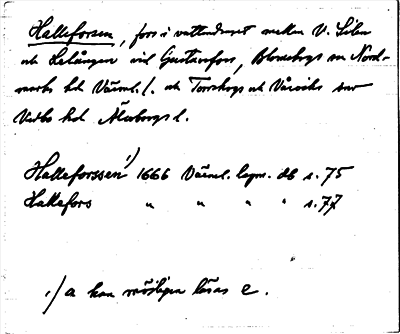 Halleforsen, fors i vattendraget mellan V. Silen
och Lelången vid Gustavsfors, Blomskogs sn Nord-
marks hd Värml. l. och Torrskogs och Vårviks snr
Vedbo hd Älvsborgs l.
Halleforssen 1) 1666 Värml. lagm. db s. 75
Hallefors " " " " s. 77
1) a kan möjligen läsas e.